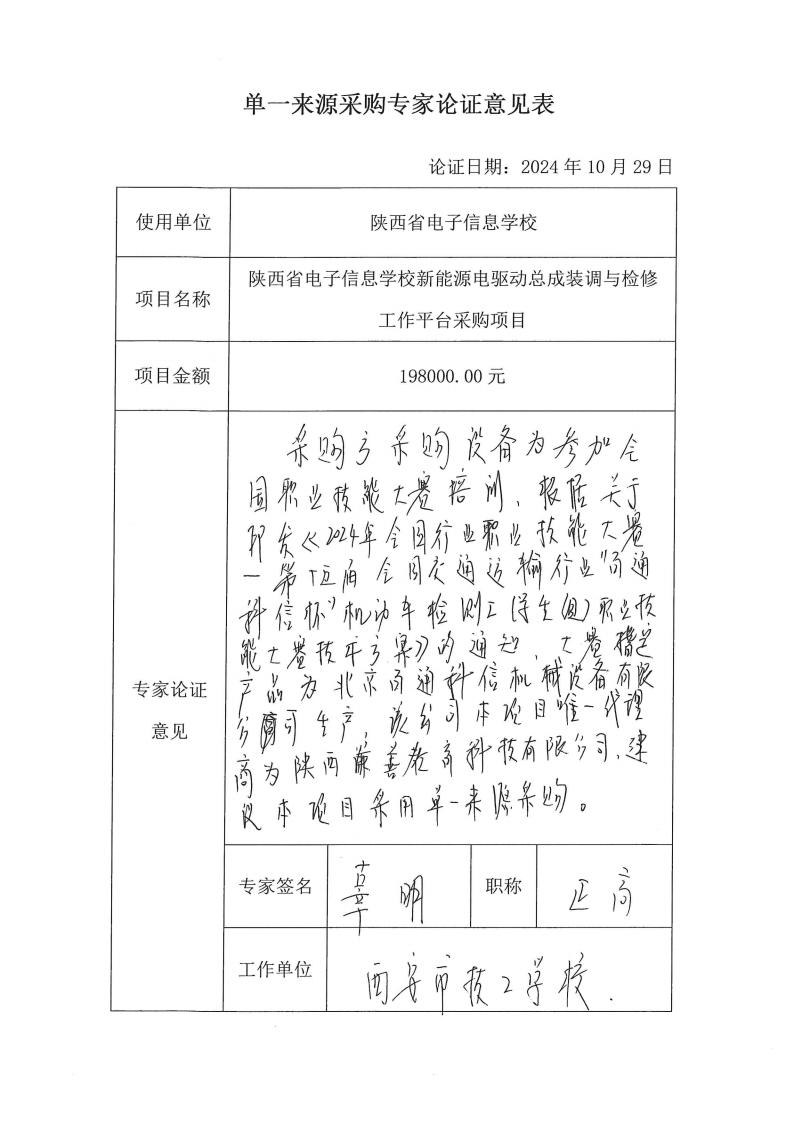 单一来源采购专家论证意见表
论证日期：2024 年 10 月 29 日
使用单位
陕西省电子信息学校
项目名称
陕西省电子信息学校新能源电驱动总成装调与检修
工作平台采购项目
项目金额
198000.00 元
专家论证
意见
采购方采购设备为参加全
国职业技能大赛培训，根据关于
印发《2024年全国行业职业技能大赛
一第十五届全国交通运输行业"商通
科信杯"机动车检测工(学生组)职业技
能大赛技术方案》的通知，大赛指定
产品为北京商通科信机械设备有限
公司生产，该公司本项目唯一代理
商为陕西 善教育科技有限公司，建
议本项目采用单一来源采购。
专家签名
明
职称
正高
工作单位
西安市技工学校.